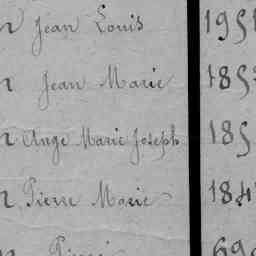 Jean Louis 195
Jean Marie 185
Ange Marie Joseph 185
Pierre Marie 184
69